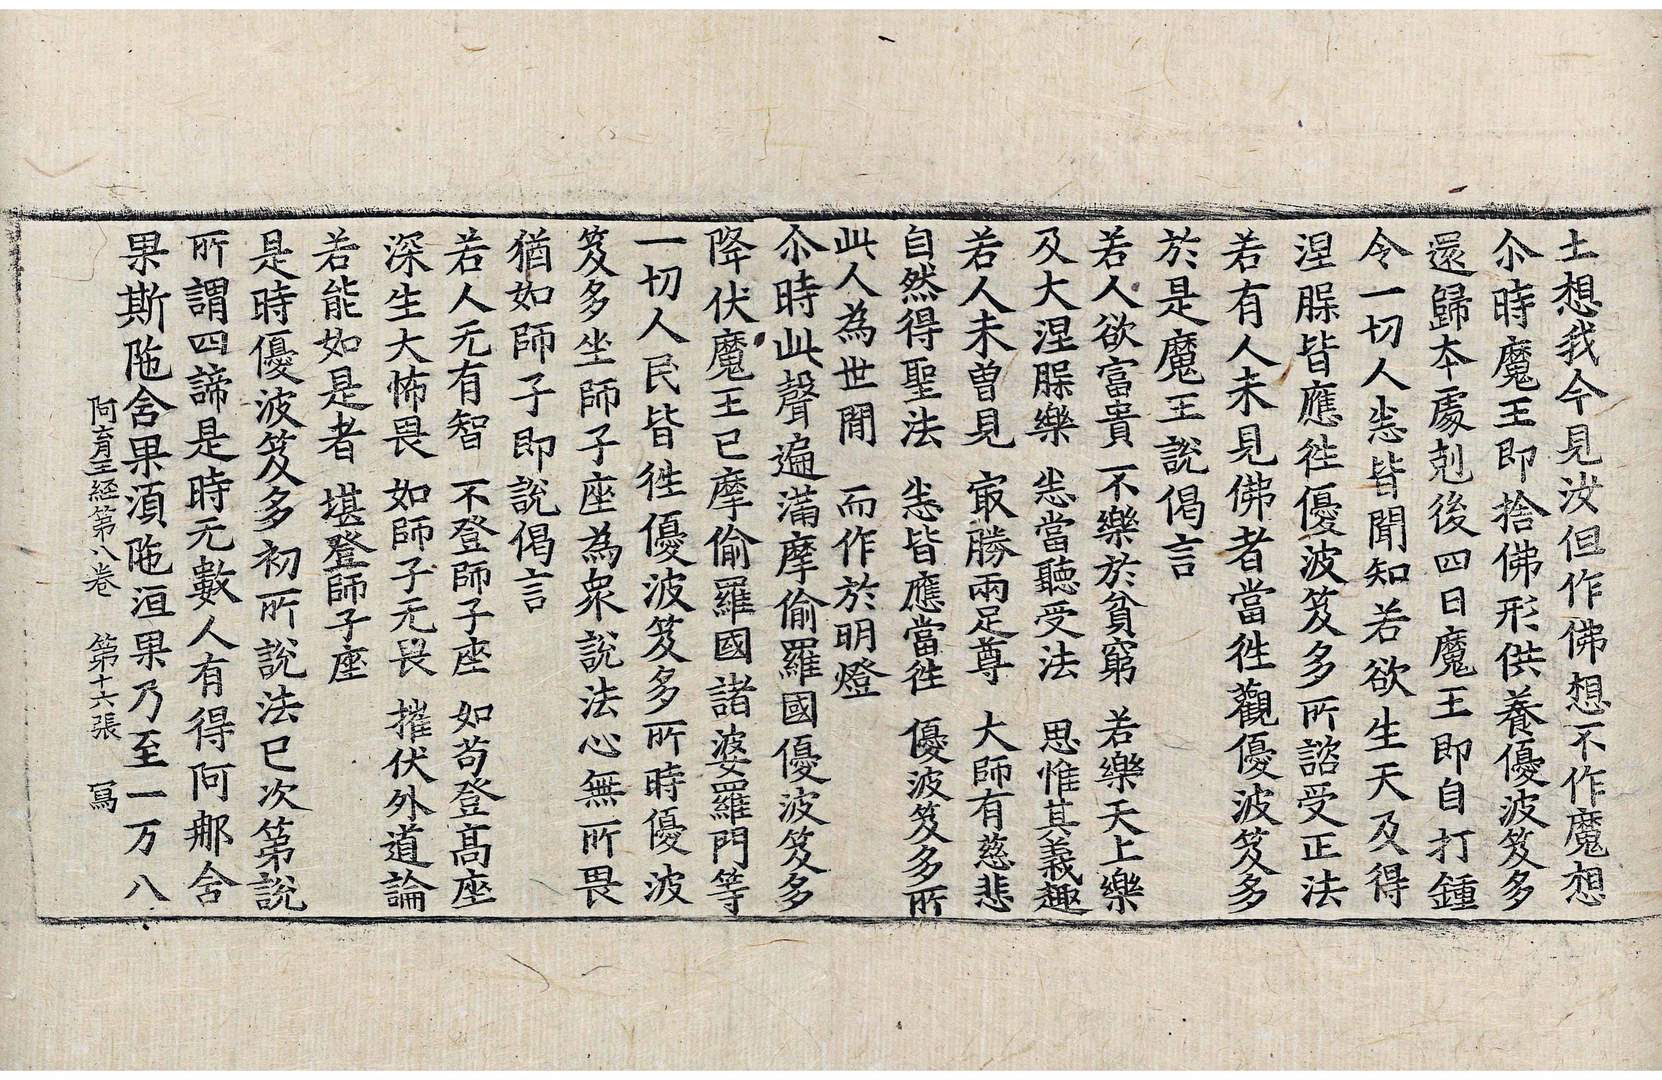 土想我今見汝但作佛想不作魔想
尒時魔王即捨佛形供養優波笈多
還歸夲處剋後四日魔王即自打鍾
令一切人悉皆聞知若欲生天及得
涅脵皆應徃優波笈多所諮受正法
若有人未見佛者當徃觀優波笈多
於是魔王說偈言
若人欲富貴　不樂於貧窮　若樂天上樂
及大涅脵樂　悉當聽受法　思惟其義趣
若人未曾見　㝡勝兩足尊　大師有慈悲
自然得聖法　悉皆應當徃　優波笈多所
此人為世間　而作於明燈
尒時此聲遍滿摩偷羅國優波笈多
降伏魔王已摩偷羅國諸婆羅門等
一切人民皆徃優波笈多所時優波
笈多坐師子座為衆說法心無所畏
猶如師子即說偈言
若人无有智　不登師子座　如苟登高座
深生大怖畏　如師子无畏　摧伏外道論
若能如是者　堪登師子座
是時優波笈多初所說法已次第說
所謂四諦是時无數人有得阿那含
果斯陁含果須陁洹果乃至一万八
阿育王經第八卷　第十六張　寫